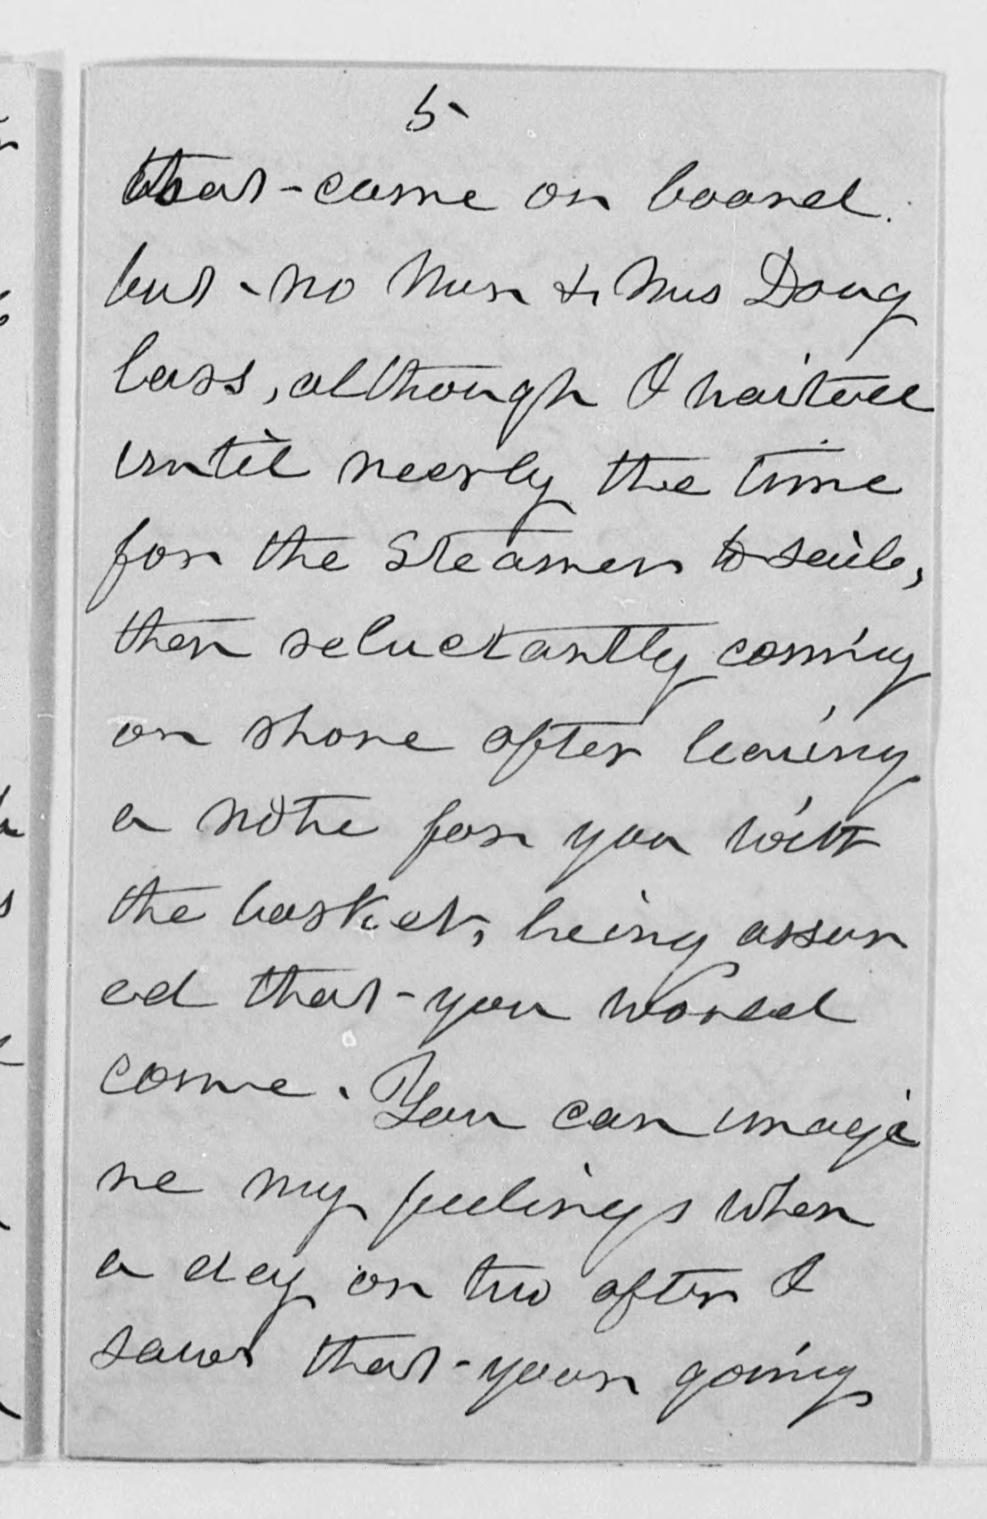 5
that - came on board.
but - no Mr & Mrs Doug
lass, although I waited
until neerly the time
for the Steamer to sail,
then reluctantly coming
on shore after leaving
a note for you with
the basket, being assur
ed that - you would
come. You can imagi
ne my feelings when
a day or two after I
saw that - your going